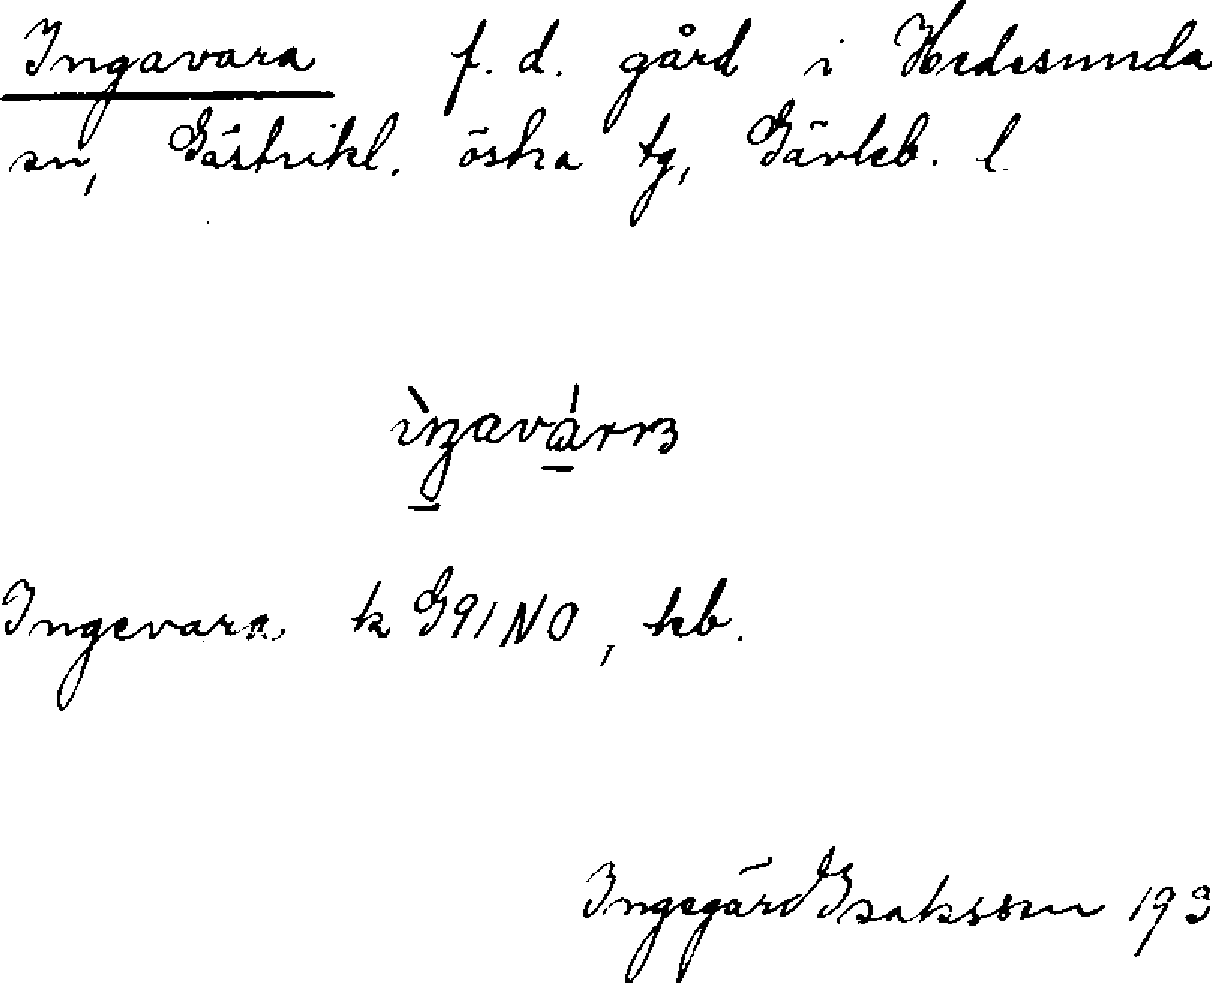 Ingavara f. d. gård i Hedesunda
sn, Gästrikl. östra tg, Gävleb. l
Ingevara k G91NO, kb.
Ingegärd Isaksson 193